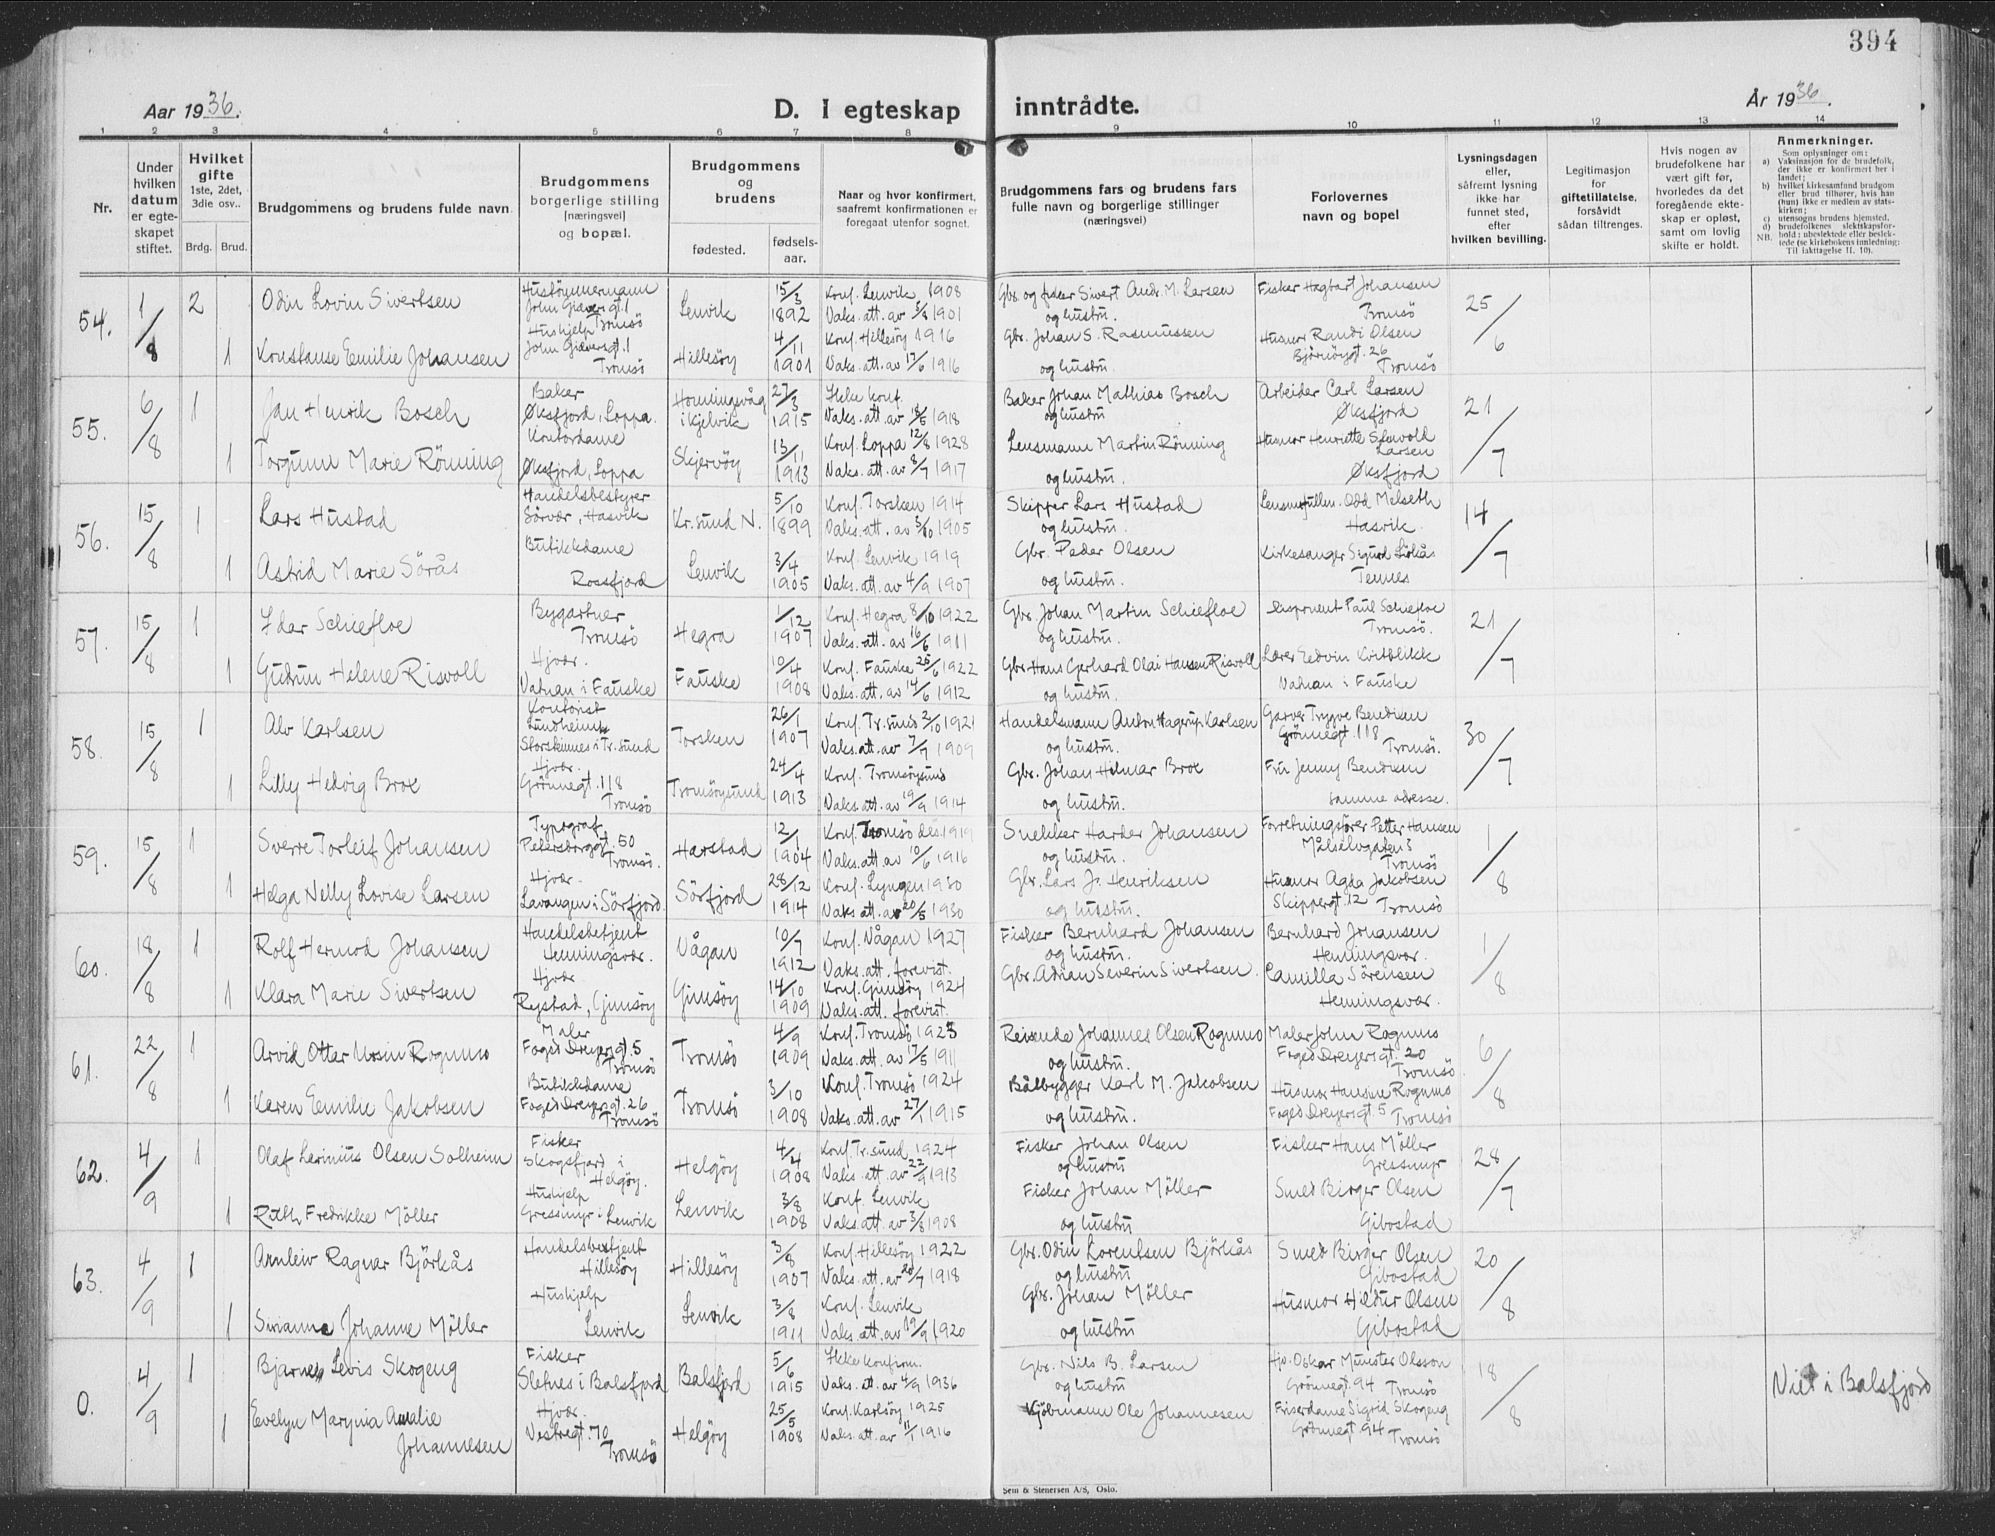 394
Aar 1936.
D. I egteskap inntrådte.
År 1936.
1 2 3 4 5 6 7 8 9 10 11 12 13 14
Nr.
Under hvilken datum er egteskapet stiftet.
Hvilket gifte 1ste, 2det, 3die osv..
Brdg. Brud.
Brudgommens og brudens fulde navn.
Brudgommens borgerlige stilling [næringsvei] og bopæl.
Brudgommens og brudens
fødested. fødselsaar.
Naar og hvor konfirmert, saafremt konfirmationen er foregaat utenfor sognet.
Brudgommens fars og brudens fars fulle navn og borgerlige stillinger (næringsvei)
Forlovernes navn og bopel
Lysningsdagen eller, såfremt lysning ikke har funnet sted, efter hvilken bevilling.
Legitimasjon for giftetillatelse, forsåvidt sådan tiltrenges.
Hvis nogen av brudefolkene har vært gift før, hvorledes da det foregående ekteskap er opløst, samt om lovlig skifte er holdt.
Anmerkninger.
Som oplysninger om:
a) Vaksinasjon for de brudefolk, der ikke er konfirmert her i landet;
b) hvilket kirkesamfund brudgom eller brud tilhører, hvis han (hun) ikke er medlem av statskirken;
c) utensogns brudens hjemsted,
d) brudefolkenes slektskapsforhold: ubeslektede eller beslektede (se kirkebokens innledning:
NB. Til iakttagelse II. 10).
54. 1/8 2 Odin Lovin Sivertsen
Hustömmermann John Giævers gt. 1 Tromsö
Lenvik 15/3 1892
Konf. Lenvik 1908
Vaks. att. av 3/8 1901
Gbr. og fisker Sivert Andr. M. Larsen og hustru.
Fisker Hagbart Johansen Tromsö
25/6
1 Konstanse Emilie Johansen
Hushjelp John Gieversgt. 1 Tromsö
Hillesöy 4/11 1901
Konf. Hillesöy 1916
Vaks. att. av 17/6 1916
Gbr. Johan S. Rasmussen og hustru.
Husmor Randi Olsen Bjørnøygt. 26 Tromsö
55. 6/8 1 Jan Henrik Bosch
Baker Øksfjord, Loppa.
Honningsvåg i Kjelvik 27/3 1915
Ikke konf.
Vaks. att. av 18/5 1918
Baker Johan Mathias Bosch og hustru
Arbeider Carl Larsen Øksfjord
21/7
1 Torgunn Marie Rönning
Kontordame Øksfjord, Loppa
Skjervöy 13/11 1913
Konf. Loppa 12/8 1928
Vaks. att. av 8/7 1917
Lensmann Martin Rönning og hustru.
Husmor Henriette Stenvold Larsen Øksfjord
56. 15/8 1 Lars Hustad
Handelsbestyrer Sörvær, Hasvik
Kr.sund N. 5/10 1899
Konf. Torsken 1914
Vaks. att. av 3/10 1905
Skipper Lars Hustad og hustru.
Lensm.fullm. Odd Melseth Hasvik.
14/7
1 Astrid Marie Sörås
Butikkdame Rossfjord
Lenvik 3/4 1905
Konf. Lenvik 1919
Vaks. att. av 4/9 1907
Gbr. Peder Olsen og hustru.
Kirkesanger Sigurd Tennes
57. 15/8 1 Idar Schiefloe
Bygartner Tromsö
Hegra 1/12 1907
Konf. Hegra 8/10 1922
Vaks. att. av 16/6 1911
Gbr. Johan Martin Schiefloe og hustru.
Disponent Paul Schiefloe Tromsö.
21/7
1 Gudrun Helene Risvoll
Hjvær. Vatnan i Fauske
Fauske 10/4 1908
Konf. Fauske 25/6 1922
Vaks. att. av 14/6 1912
Gbr. Hans Gerhard Olai Hansen Risvoll og hustru.
Lærer Edvin Kvitblikk Vatnan i Fauske
58. 15/8 1 Alv Karlsen
Kontorist Storskinnes i Tr.sund
Torsken 26/1 1907
Konf. Tr.sund 2/10 1921
Vaks. att. av 7/9 1909
Handelsmann Andr. Hagerup Karlsen og hustru.
Garver Trygve Bendiksen Grönnegt. 118 Tromsö.
30/7
1 Lilly Hedvig Brox
Hjvær. Grönnegt. 118 Tromsö
Tromsöysund 24/4 1913
Konf. Tromsöysund
Vaks. att. av 19/9 1914
Gbr. Johan Hilmar Brox og hustru.
Fru Jenny Bendiksen samme adresse.
59. 15/8 1 Sverre Torleif Johansen
Typograf Petersborggt. 50 Tromsö.
Harstad 12/1 1904
Konf. Tromsö des. 1919
Vaks. att. av 10/6 1916
Snekker Harder Johansen og hustru.
Forretningsfører Petter Hansen Målselvgaten 3 Tromsö
1/8
1 Helga Nelly Lovise Larsen
Hjvær. Lavangen i Sörfjord.
Sörfjord 28/12 1914
Konf. Lyngen 1930
Vaks att. av 20/5 1930
Gbr. Lars Jr. Henriksen og hustru.
Husmor Agda Jakobsen Skippergt. 12 Tromsö
60. 18/8 1 Rolf Hermod Johansen
Handelsbetjent Henningsvær.
Vågan 10/7 1912
Konf. Vågan 1927
Vaks. att. forevist.
Fisker Bernhard Johansen og hustru.
Bernhard Johansen Henningsvær.
1/8
1 Klara Marie Sivertsen
Hjvær Rystad, Gimsöy
Gimsöy 14/10 1909
Konf. Gimsöy 1924
Vaks. att. forevist.
Gbr. Adrian Severin Sivertsen.
Camilla Sörensen Henningsvær.
61. 22/8 1 Arvid Ottar Ursin Rognmo
Maler Foged Dreyersgt. 5 Tromsö
Tromsö 4/9 1909
Konf. Tromsö 1923
Vaks. att. av 17/5 1911
Reisende Johannes Olsen Rognmo og hustru.
Maler John Rognmo Foged Dreyersgt. 20 Tromsö
6/8
1 Karen Emilie Jakobsen
Butikkdame Foged Dreyersgt. 26 Tromsö
Tromsö 3/10 1908
Konf. Tromsö 1924
Vaks. att. av 27/1 1915
Båtbygger Karl M. Jakobsen og hustru.
Husmor Hansine Rognmo Foged Dreyersgt. 5 Tromsö
62. 4/9 1 Olaf Lerinius Olsen Solheim
Fisker Skogsfjord i Helgöy.
Helgöy 4/4 1908
Konf. Tr.sund 1924
Vaks. att. av 22/9 1913
Fisker Johan Olsen og hustru
Fisker Hans Möller Gressmyr
28/7
1 Ruth Fredrikke Möller
Hushjelp Gressmyr i Lenvik
Lenvik 3/8 1908
Konf. Lenvik
Vaks. att. av 3/8 1908
Fisker Johan Möller og hustru
Smed Birger Olsen Gibostad
63. 4/9 1 Arnleiv Ragnar Björkås
Handelsbetjent Hillesöy
Hillesöy 3/8 1907
Konf. Hillesöy 1922
Vaks. att. av 20/7 1918
Gbr. Odin Lorentsen Björkås og hustru
Smed Birger Olsen Gibostad
20/8
1 Sivianna Johanne Möller
Hushjelp Lenvik
Lenvik 3/8 1911
Konf. Lenvik
Vaks. att. av 19/9 1920
Gbr. Johan Möller og hustru
Husmor Hildur Olsen Gibostad
0. 4/9 1 Bjarne Levis Skogeng
Fisker Sletnes i Balsfjord
Balsfjord 5/6 1915
Ikke konfirm.
Vaks. att. av 4/9 1936
Gbr. Nils B. Larsen og hustru
Hjs. Oskar Munster Olsson Grönnegt. 94 Tromsö
18/8
Viet i Balsfjord
1 Evelyn Maryna Amalie Johannesen
Hjvær. Vestregt. 70 Tromsö
Helgöy 25/5 1908
Konf. Karlsöy 1925
Vaks. att. av 11/1 1916
Kjöbmann Ole Johannesen
Friserdame Sigrid Skogeng Grönnegt. 94 Tromsö
Sem & Stenersen A/S, Oslo.